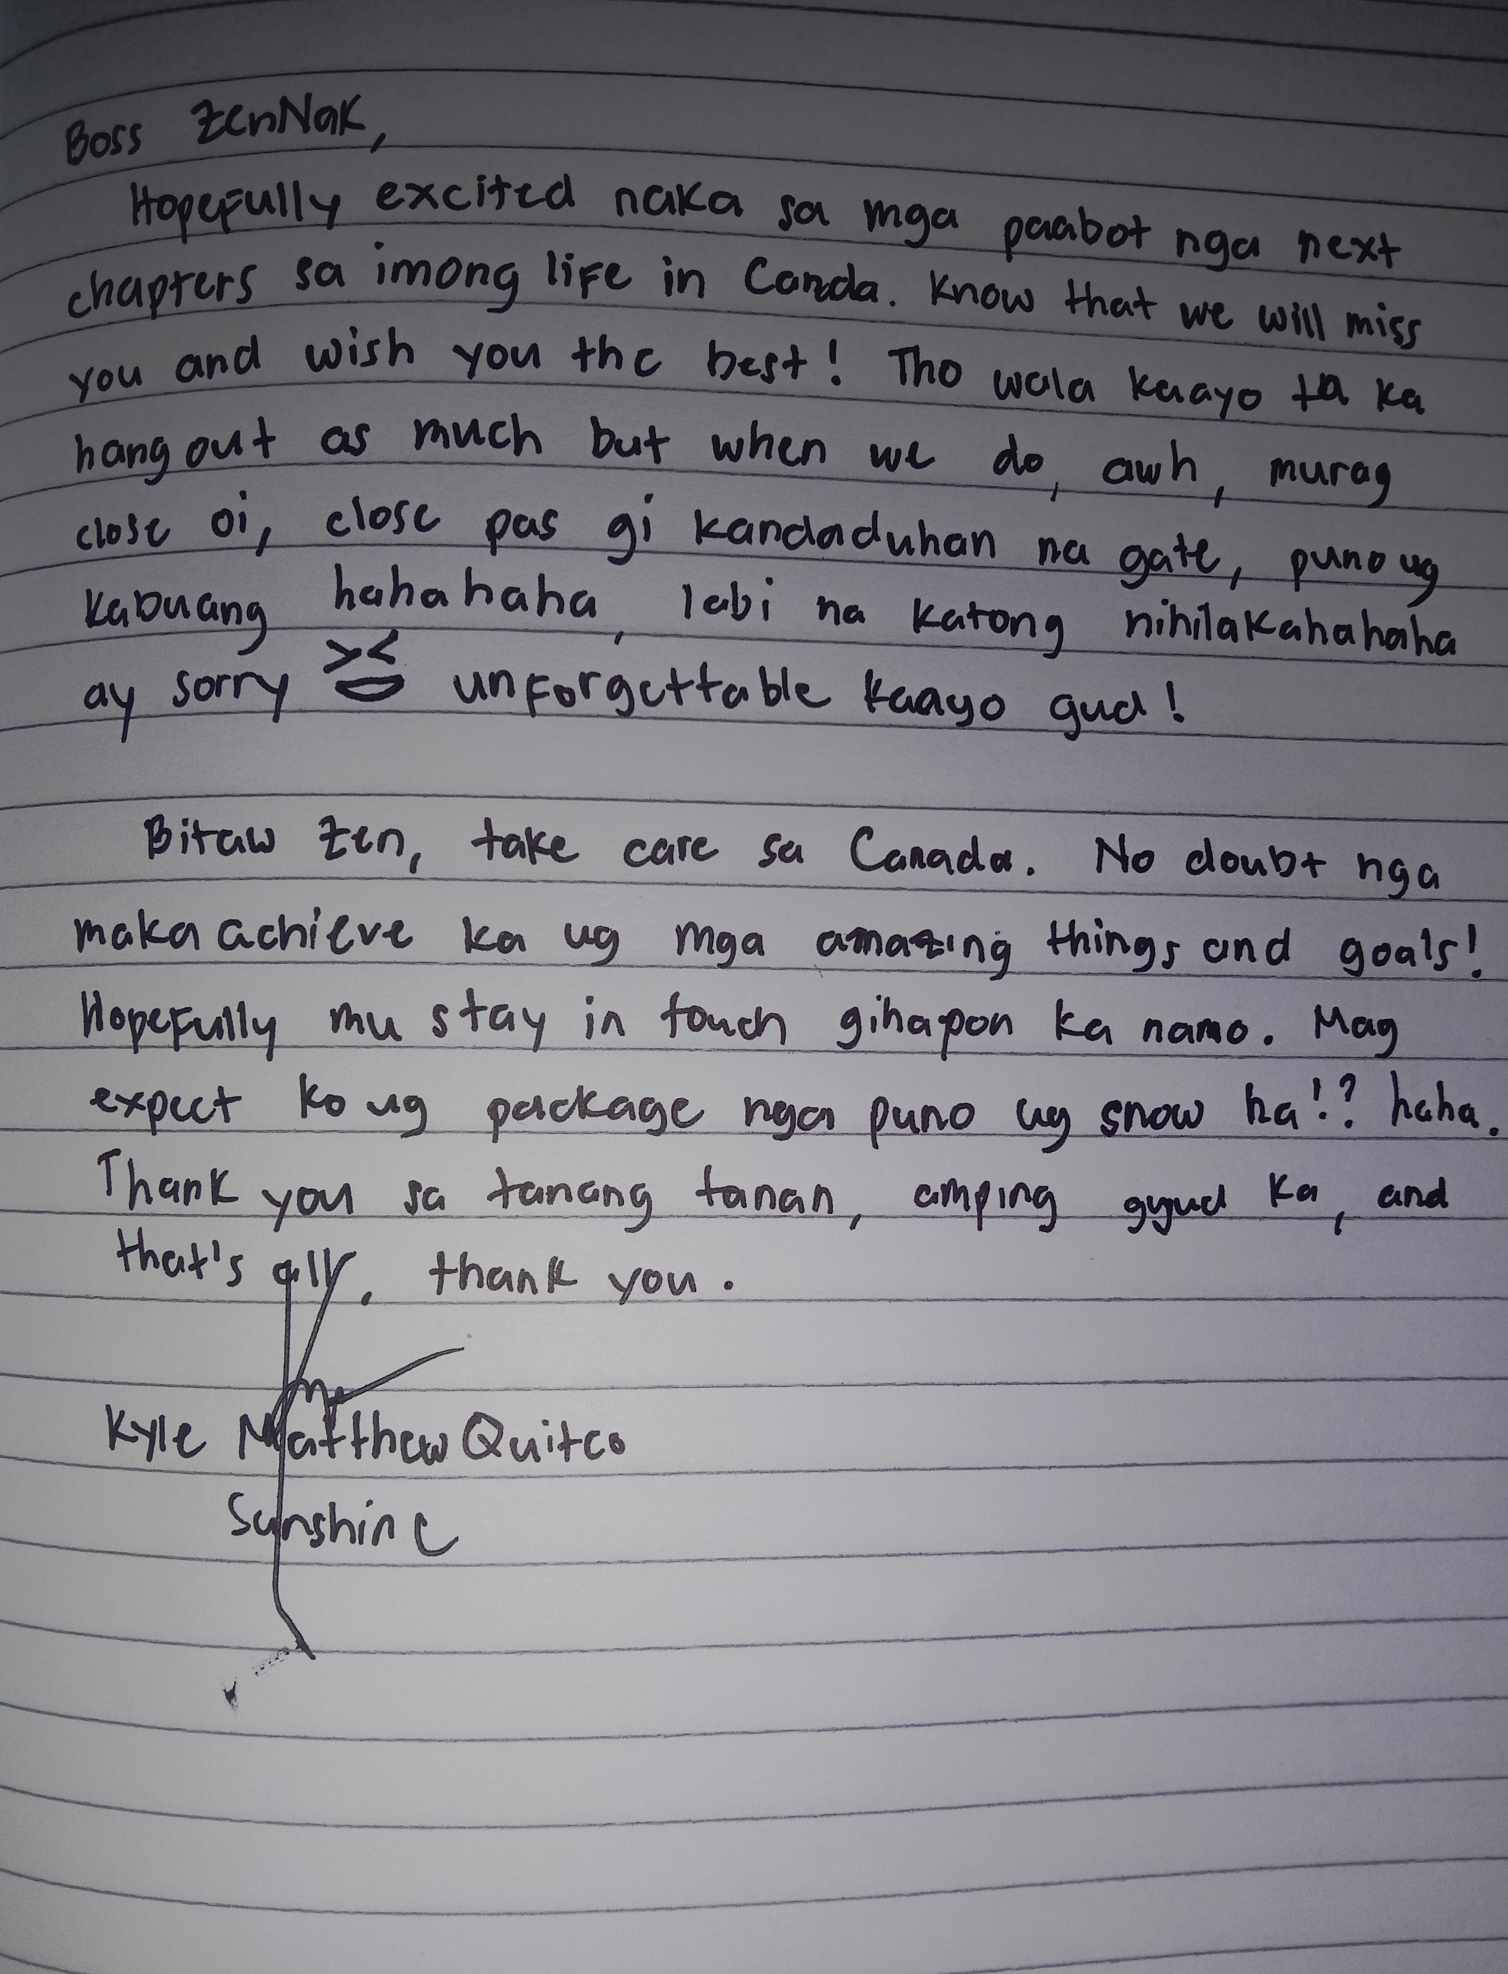 Boss ZenNak,
Hopefully excited naka sa mga paabot nga next
chapters sa imong life in Canda. Know that we will miss
you and wish you the best! Tho wala kaayo ta ka
hang out as much but when we do, awh, murag
close oi, close pas gi kandaduhan na gate, puno ug
kabuang hahahaha, labi na katong nihilakahahaha
ay sorry unforgettable kaayo gud!
Bitaw Zen, take care sa Canada. No doubt nga
maka achieve ka ug mga amazing things and goals!
Hopefully mu stay in touch gihapon ka namo. Mag
expect ko ug package nga puno ug snow ha!? haha.
Thank you sa tanang tanan, amping gyud ka, and
that's all, thank you.
Kyle Matthew Quitco
Sunshine